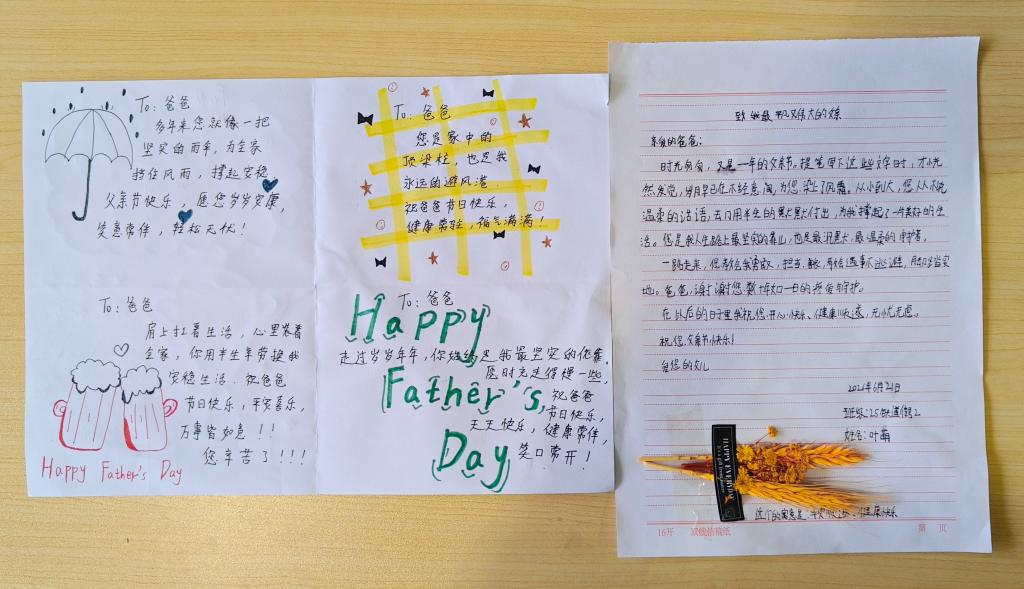 To: 爸爸
多年来您就像一把
坚实的雨伞，为全家
挡住风雨，撑起安稳。
父亲节快乐，愿您岁岁安康，
笑意常伴，轻松无忧！
To: 爸爸
您是家中的
顶梁柱，也是我
永远的避风港。
祝爸爸节日快乐，
健康常驻，福气满满！
To: 爸爸
肩上扛着生活，心里装着
全家，你用半生辛劳换我
安稳生活。祝爸爸
节日快乐，平安喜乐，
万事皆如意！！
您辛苦了！！！
Happy Father's Day
To: 爸爸
Happy
走过岁岁年年，你始终是我最坚实的依靠。
愿时光走得慢一些，
Father's
祝爸爸
节日快乐，
天天快乐，健康常伴，
Day
笑口常开！
致我最平凡伟大的父亲
亲爱的爸爸：
时光匆匆，又是一年的父亲节。提笔写下这些文字时，才恍
然发觉，岁月早已在不经意间，为您染上了风霜。从小到大，您从不说
温柔的话语，却用半生的默默付出，为我撑起了一片美好的生
活。您是我人生路上最坚实的靠山，也是最沉默、最温柔的守护者。
一路走来，您教会我勇敢、担当、遇事不逃避，脚踏实
地。爸爸，谢谢您数十年如一日的疼爱与守护。
在以后的日子里我祝您：开心快乐、健康顺遂，无忧无虑。
祝您父亲节快乐！
您的女儿
2026年6月21日
班级：25
姓名：叶萌
HAPPY EVERYDAY
这个的寓意是：平安顺遂、健康快乐
16开 双线信稿纸 第 页